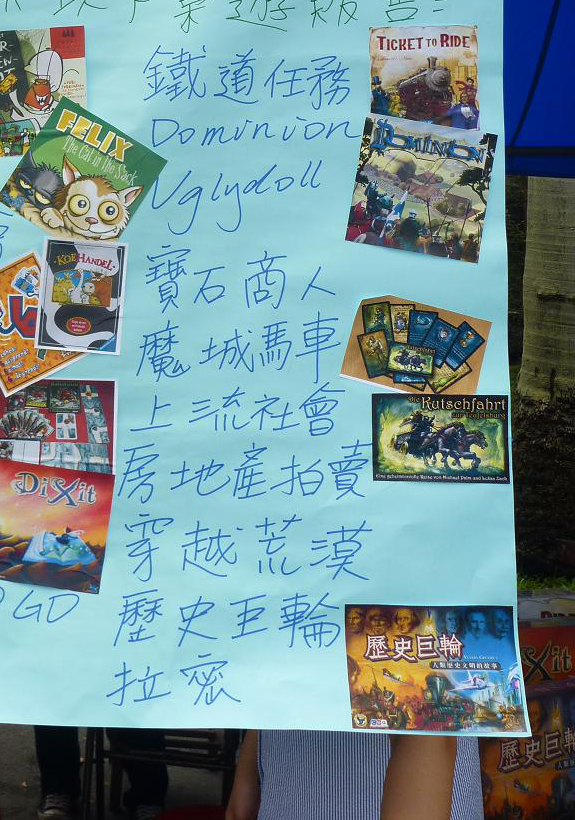 桌遊報告:
鐵道任務
TICKET TO RIDE
Dominion
DOMINION
FELIX
The Cat in the Sack
Uglydoll
KOEHANDEL
寶石商人
魔城馬車
上流社會
Die Kutschfahrt
zur Teufelsburg
Eine geheimnisvolle Reise von Michael Palm und Lukas Zach
房地產拍賣
DiXit
穿越荒漠
GO
歷史巨輪
歷史巨輪
人類歷史文明的故事
拉密
xit
歷史巨